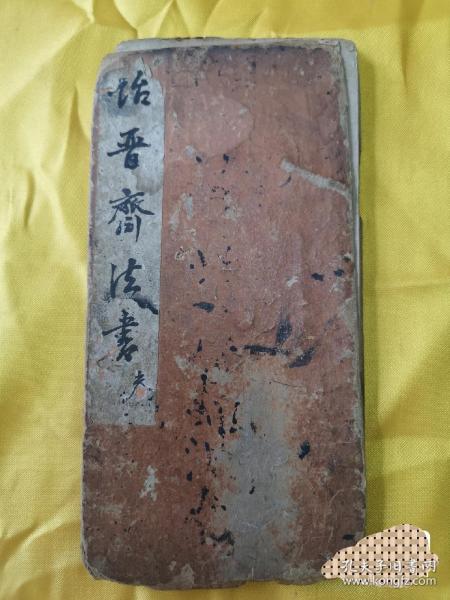 詒晋齋法書
孔夫子旧书网
www.kongfz.com